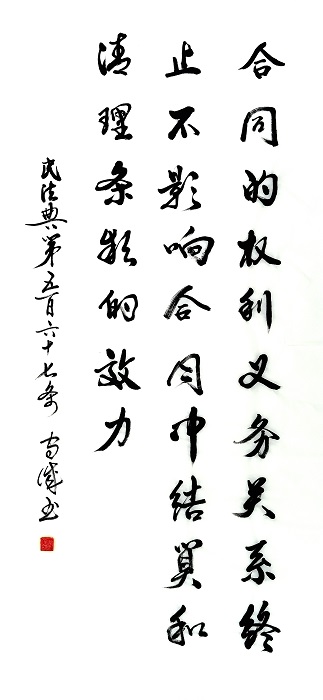 合同的权利义务关系终
止不影响合同中结算和
清理条款的效力
民法典第五百六十七条 书